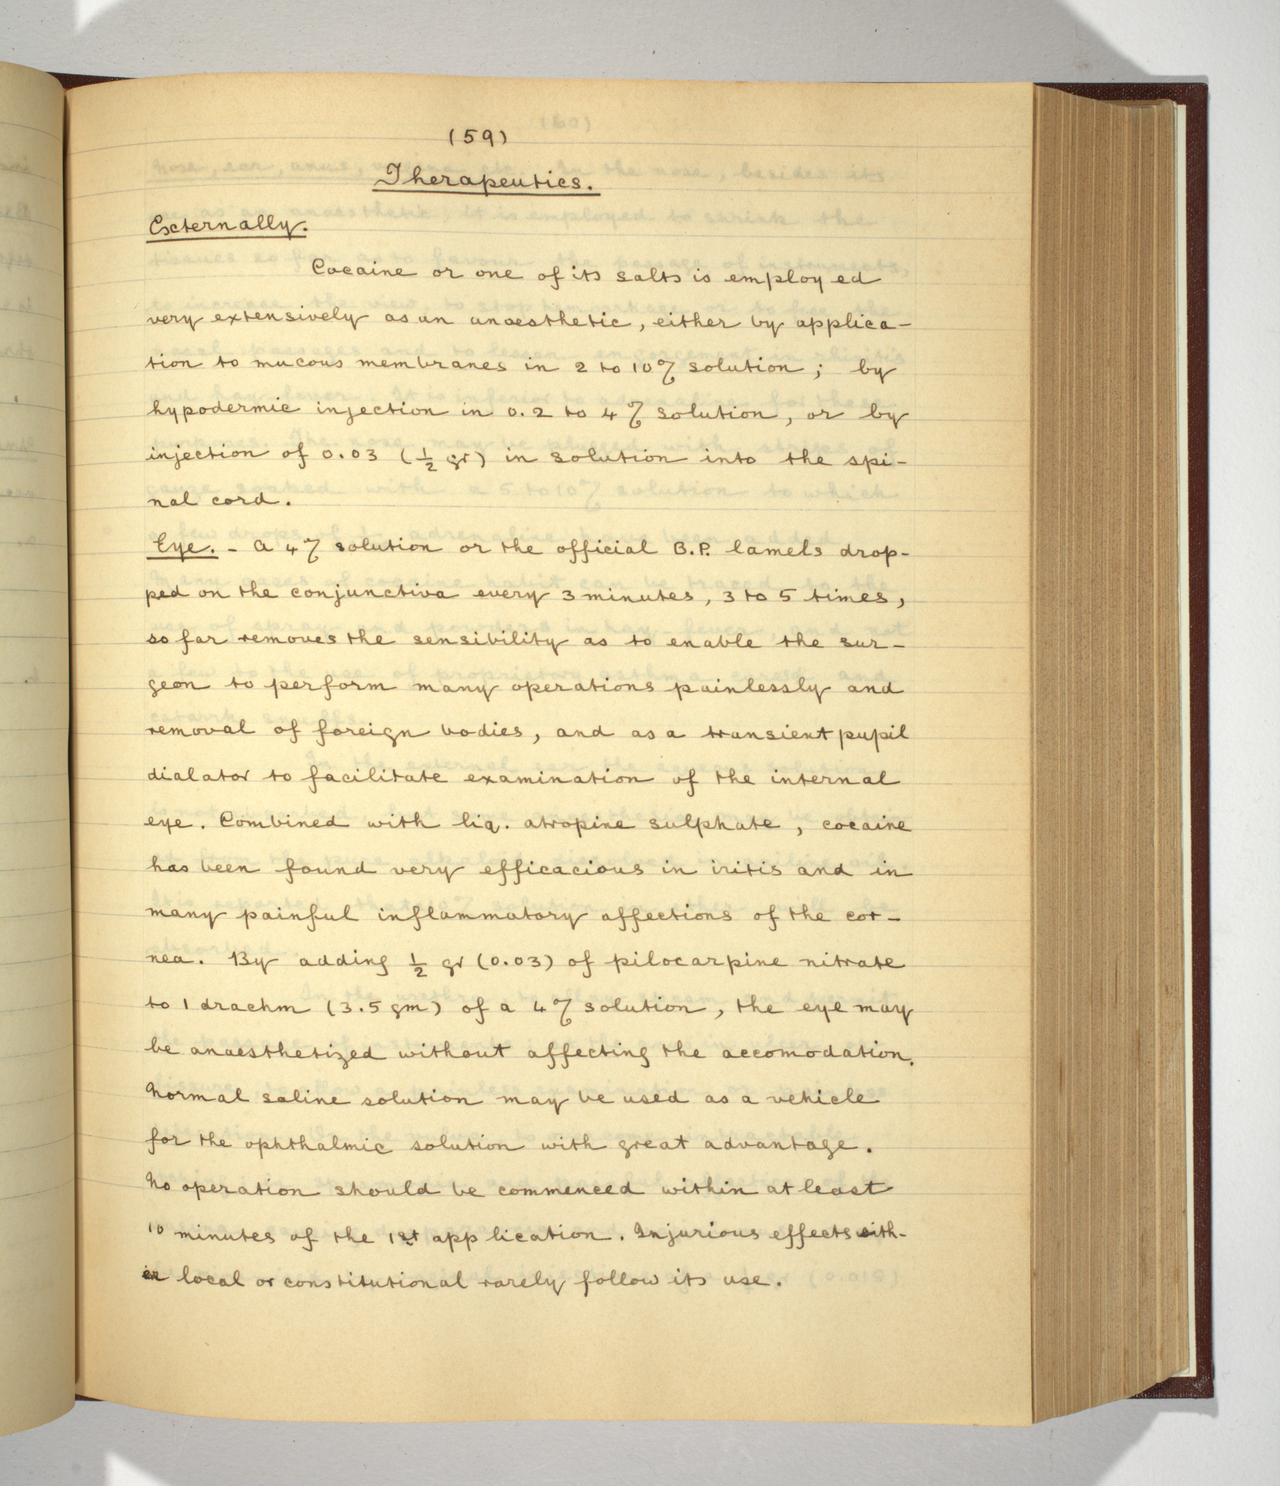 (59)
Therapeutics.
Externally.
Cocaine or one of its salts is employed
very extensively as an anaesthetic, either by applica-
tion to mucous membranes in 2 to 10% solution; by
hypodermic injection in 0.2 to 4% solution, or by
injection of 0.03 (½ gr) in solution into the spi-
nal cord.
Eye. - A 4% solution or the official B.P. lamels drop-
ped on the conjunctiva every 3 minutes, 3 to 5 times,
so far removes the sensibility as to enable the sur-
geon to perform many operations painlessly and
removal of foreign bodies, and as a transient pupil
dialator to facilitate examination of the internal
eye. Combined with liq. atropine sulphate, cocaine
has been found very efficacious in iritis and in
many painful inflammatory affections of the cor-
nea. By adding ½ gr (0.03) of pilocarpine nitrate
to 1 drachm (3.5 gm) of a 4% solution, the eye may
be anaesthetized without affecting the accomodation.
Normal saline solution may be used as a vehicle
for the ophthalmic solution with great advantage.
No operation should be commenced within at least
10 minutes of the 1st application. Injurious effects eith-
er local or constitutional rarely follow its use.